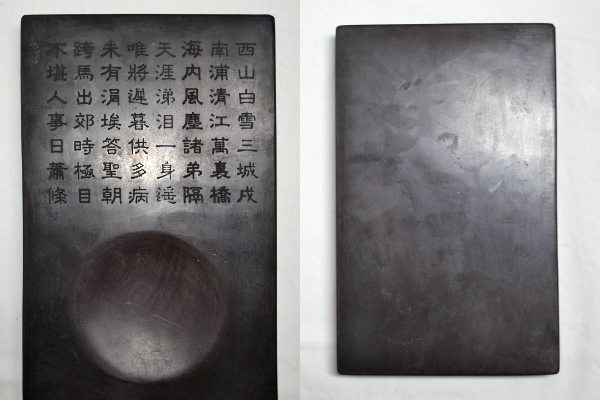 西山白雪三城戍
南浦清江萬裏橋
海内風塵諸弟隔
天涯涕泪一身遥
唯將遲暮供多病
未有涓埃答聖朝
跨馬出郊時極目
不堪人事日蕭條